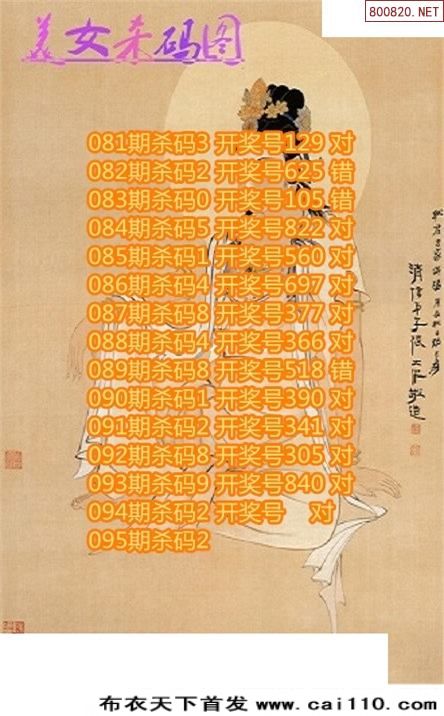 800820.NET
美女杀码图
081期杀码3 开奖号129 对
082期杀码2 开奖号625 错
083期杀码0 开奖号105 错
084期杀码5 开奖号822 对
085期杀码1 开奖号560 对
086期杀码4 开奖号697 对
087期杀码8 开奖号377 对
088期杀码4 开奖号366 对
089期杀码8 开奖号518 错
090期杀码1 开奖号390 对
091期杀码2 开奖号341 对
092期杀码8 开奖号305 对
093期杀码9 开奖号840 对
094期杀码2 开奖号 对
095期杀码2
布衣天下首发 www.cai110.com